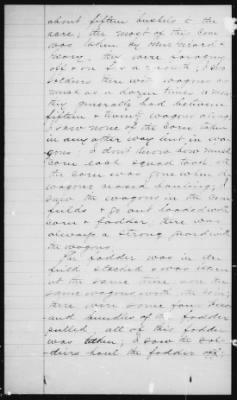 about fifteen bushels to the
acre; the most of this corn
was taken by
they were hauling
off corn for a month, the
soldiers there with wagons as
much as a dozen times a
they generally had between
fifteen & twenty wagons along,
I saw none of the corn taken
in any other way but in wa-
gons; I don't know how much
corn each squad took off
the corn was gone when the
wagons ceased hauling; I
saw the wagons in the corn
fields & go out loaded with
corn & fodder, there was
always a strong guard with
the wagons.
The fodder was in the
field stacked & was taken
at the same time and the
same wagons with the corn,
there were some four thous-
and bundles of the fodder
pulled, all of this fodder
was taken; I saw the sol-
diers haul the fodder off,